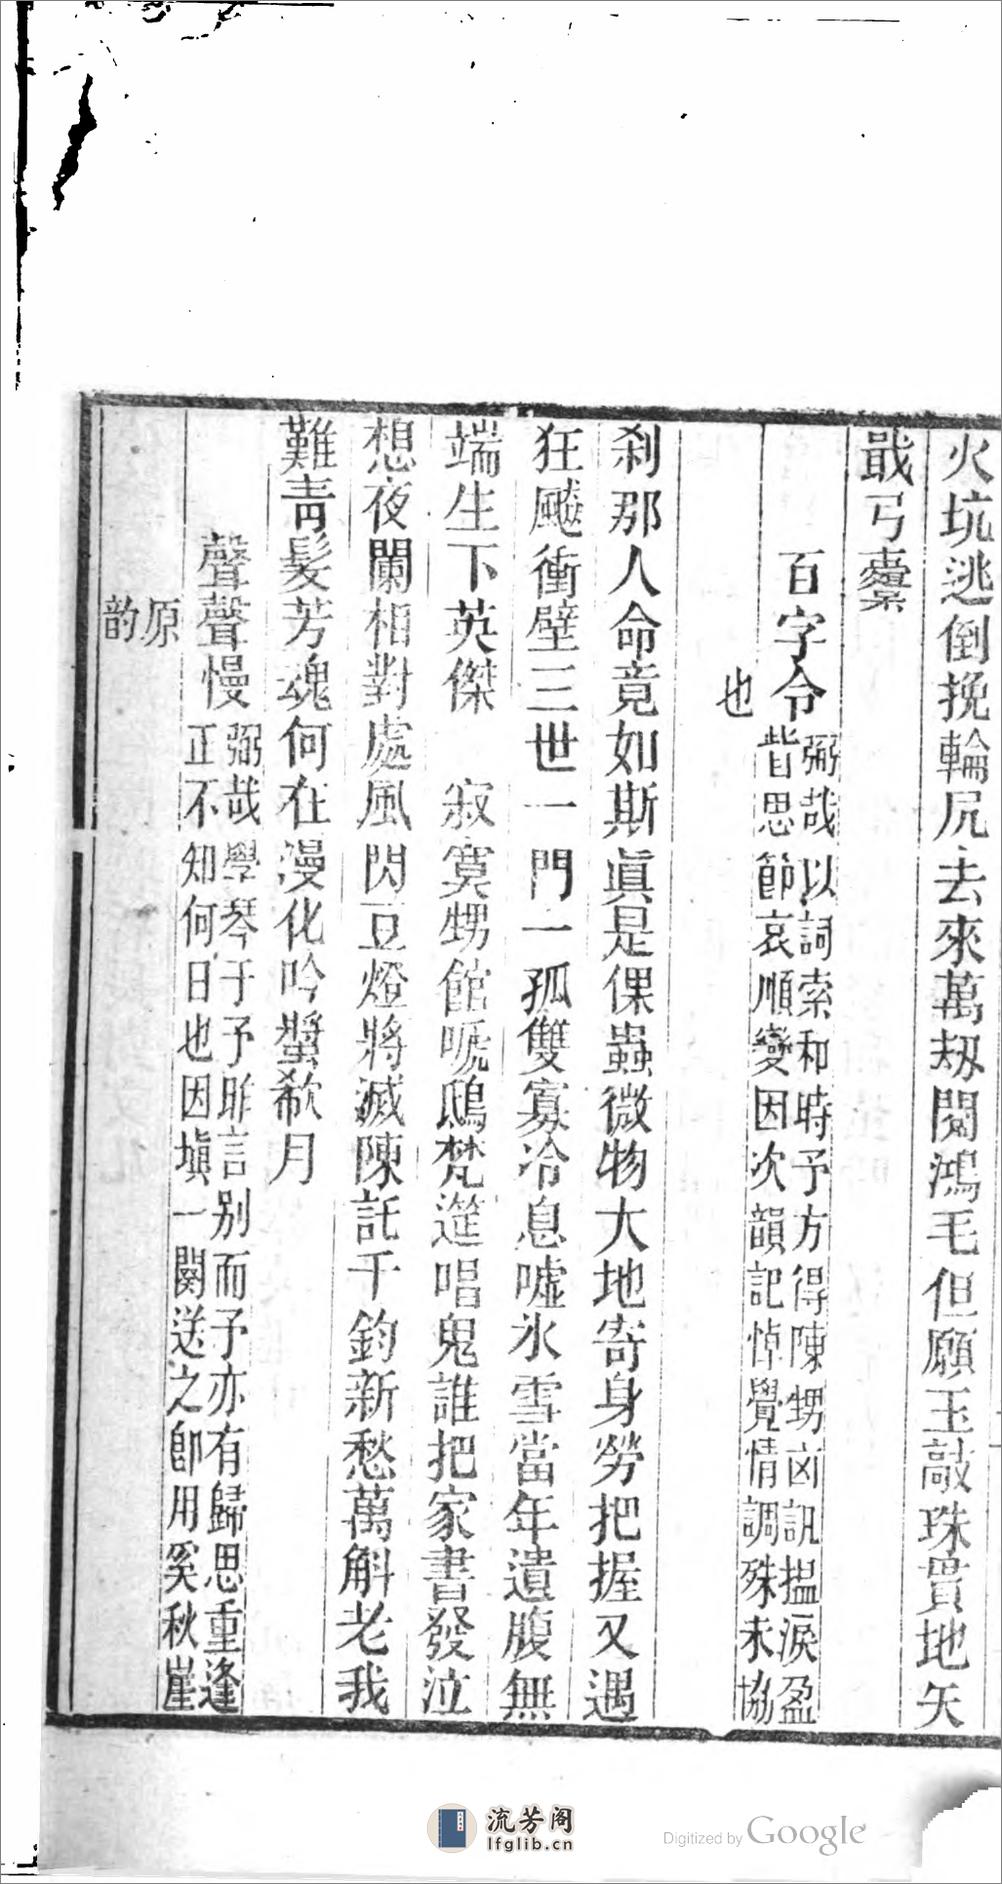 火坑逃倒挽輪尻去來萬刼閱鴻毛但願玉敲珠貫地矢
戢弓櫜
百字令
弼哉以詞索和時予方得陳甥凶訊揾淚盈
眥思節哀順變因次韻記悼覺情調殊未協
也
刹那人命竟如斯眞是倮蟲微物大地寄身勞把握又遇
狂飈衝壁三世一門一孤雙寡冷息噓氷雪當年遺腹無
端生下英傑　寂寞甥館嗁鴟梵筵唱鬼誰把家書發泣
想夜闌相對處風閃豆燈將滅陳託千鈞新愁萬斛老我
難靑髮芳魂何在漫化吟螿欷月
聲聲慢
弼哉學琴于予昨言别而予亦有歸思重逢
正不知何日也因塡一闋送之卽用奚秋崖
原
韵
流芳阁
lfglib.cn
Digitized by Google